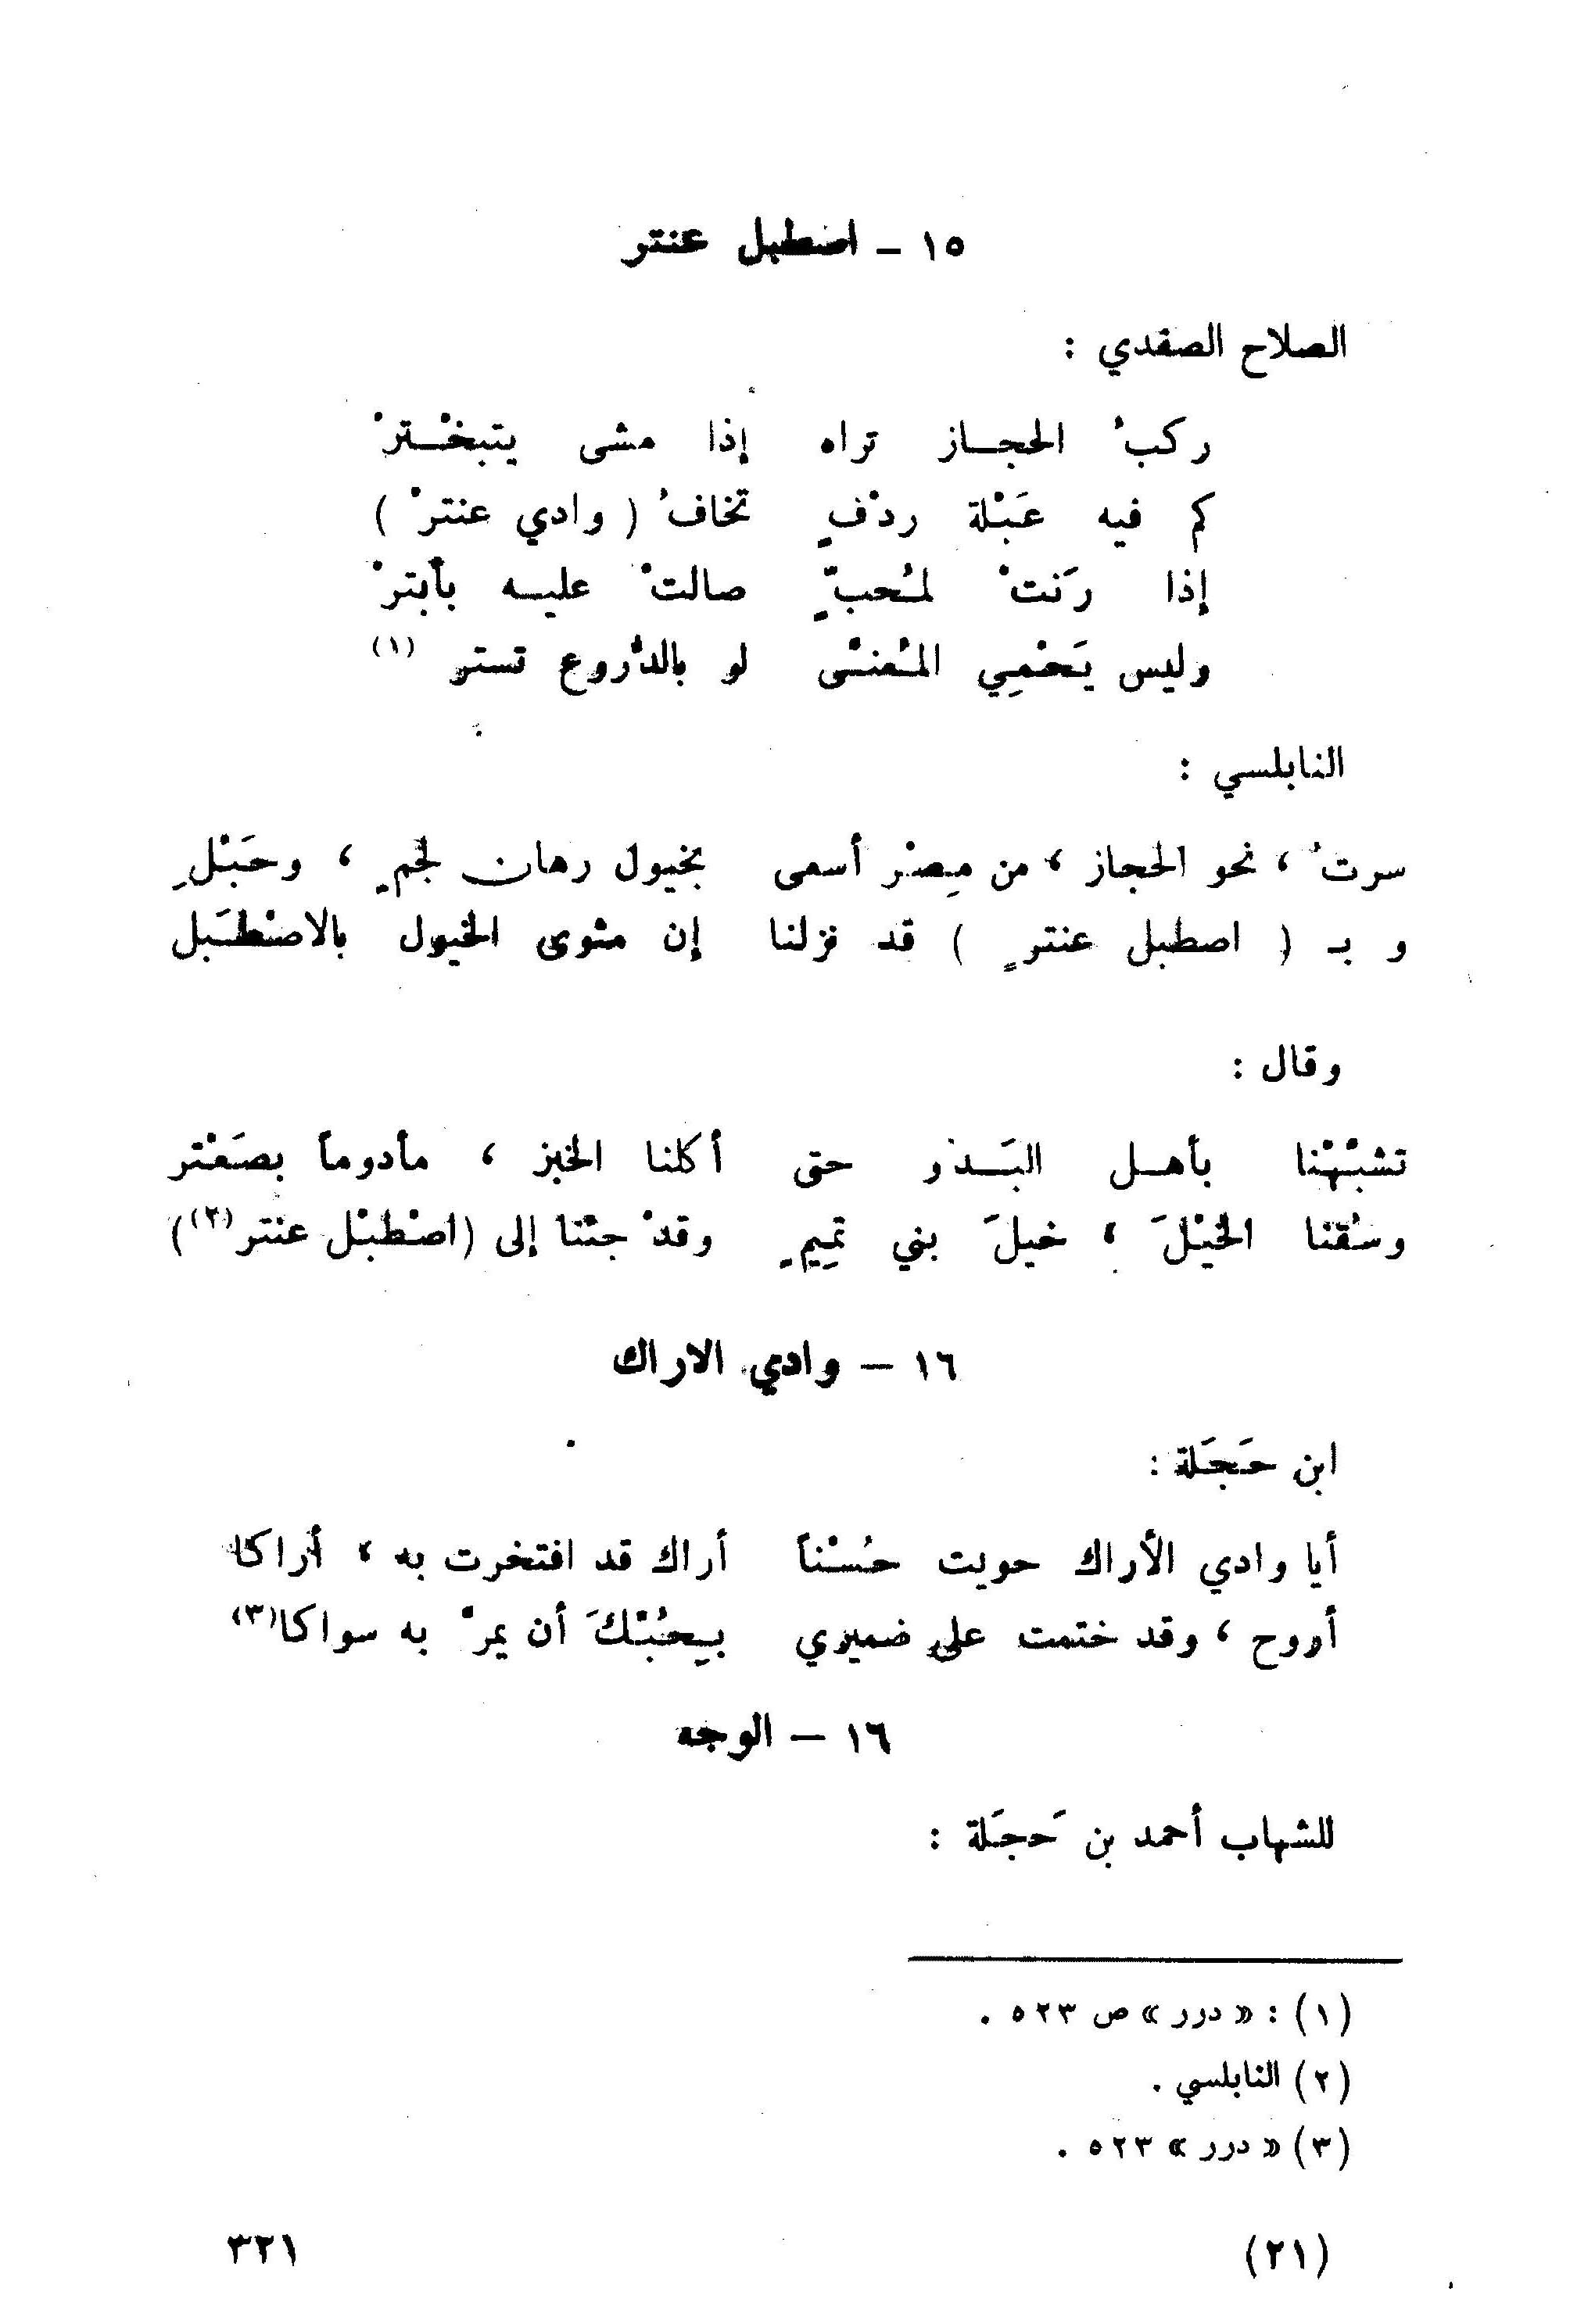 ١٥ – اصطبل عنتر
الصلاح الصفدي :
ركبُ الحجـاز تراه إذا مشى يتبخْـترْ
كم فيه عَبْلة ردْفٍ تخافُ ( وادي عنترْ )
إذا رَنتْ لمُحبٍّ صالتْ عليـه بأبترْ
وليس يَحْمِي المُعنـّى لو بالدُّروع تستر (١)
النابلسي :
سرتُ ، نحو الحجاز ، من مِصْر أسعى بخيول رهان لجمٍ ، وحَبْلِ
و بـ ( اصطبل عنترٍ ) قد نزلنا إن مثوى الخيول بالاصْطَبل
وقال :
تشبّهْنا بأهـل البَـدْو حتى أكلنا الخبز ، مأدوماً بصَعْتر
وسُقنا الخيْلَ ، خيلَ بني تمِيمٍ وقدْ جئنا إلى (اصْطبْل عنتر(٢))
١٦ – وادي الاراك
ابن حَجَلة :
أيا وادي الأراك حويت حُسْناً أراك قد افتخرت به ، أراكا
أروح ، وقد ختمت على ضميري بِحُبْكَ أن يمرْ به سواكا(٣)
١٦ – الوجه
للشهاب أحمد بن حَجَلة :
(١) : « درر » ص ٥٢٣ .
(٢) النابلسي .
(٣) « درر » ٥٢٣ .
(٢١) ٣٢١